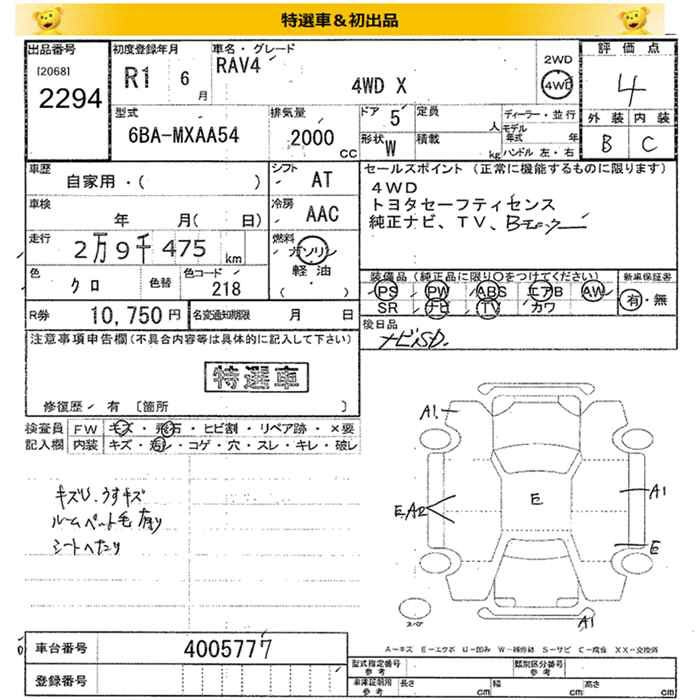 特選車＆初出品
出品番号
[2068]
2294
初度登録年月
R1 6月
車名・グレード
RAV4
4WD X
2WD
4WD
評価点
4
外装 内装
B C
型式
6BA-MXAA54
排気量
2000 CC
ドア 5
定員 人
形状 W
積載 kg
ディーラー・並行
モデル年式 年
ハンドル 左・右
車歴
自家用・( )
シフト AT
セールスポイント (正常に機能するものに限ります)
4WD
トヨタセーフティセンス
純正ナビ、TV、
車検
年 月( 日)
冷房 AAC
走行
2万9千475 km
燃料
ガソリン
軽油
・( )
色
クロ
色替
色コード
218
装備品 (純正品に限り○をつけてください)
PS PW ABS エアB AW
SR ナビ TV カワ
新車保証書
有・無
R券 10,750円
名変通知期限 月 日
後日品
ナビSD.
注意事項申告欄 (不具合内容等は具体的に記入して下さい)
特選車
修復歴 / 有 [箇所 ]
検査員記入欄
FW キズ・飛石・ヒビ割・リペア跡・×要
内装 キズ・汚レ・コゲ・穴・スレ・キレ・破レ
キズU、うすキズ
ルームペット毛有り
シートへたり
A1
E
E,A2
A1
E
A1
スペア
A－キズ E－エクボ U－凹み W－補修跡 S－サビ C－腐食 XX－交換済
車台番号 4005777
登録番号
型式指定番号 参考
類別区分番号 参考
車庫証明用 参考
長さ cm 幅 cm 高さ cm